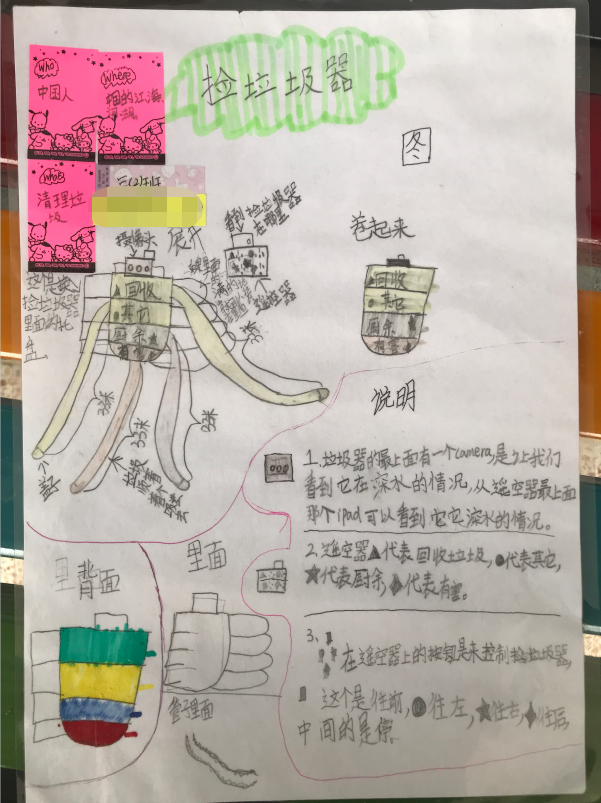 捡垃圾器
Who
中国人
Where
中国的江海
河湖
What
清理垃
圾
三(2)班
图
摄像头
展开
看到捡垃圾器
在哪里
遥控器
卷起来
回收
其它
厨余
有害
这是捡
捡垃圾器
里面的
回收
其它
厨余
有害
33米
33米
33米
33米
说明
1.垃圾器的最上面有一个camera,是让我们
看到它在深水的情况,从遥空器最上面
那个ipad可以看到它它深水的情况。
2.遥空器▲代表回收垃圾,●代表其它,
★代表厨余,◆代表有害。
3、
在遥空器上的按钮是来控制捡垃圾器,
这个是往前,●往左,★往右,◆往后,
中间的是停。
背面
里面
管子里面